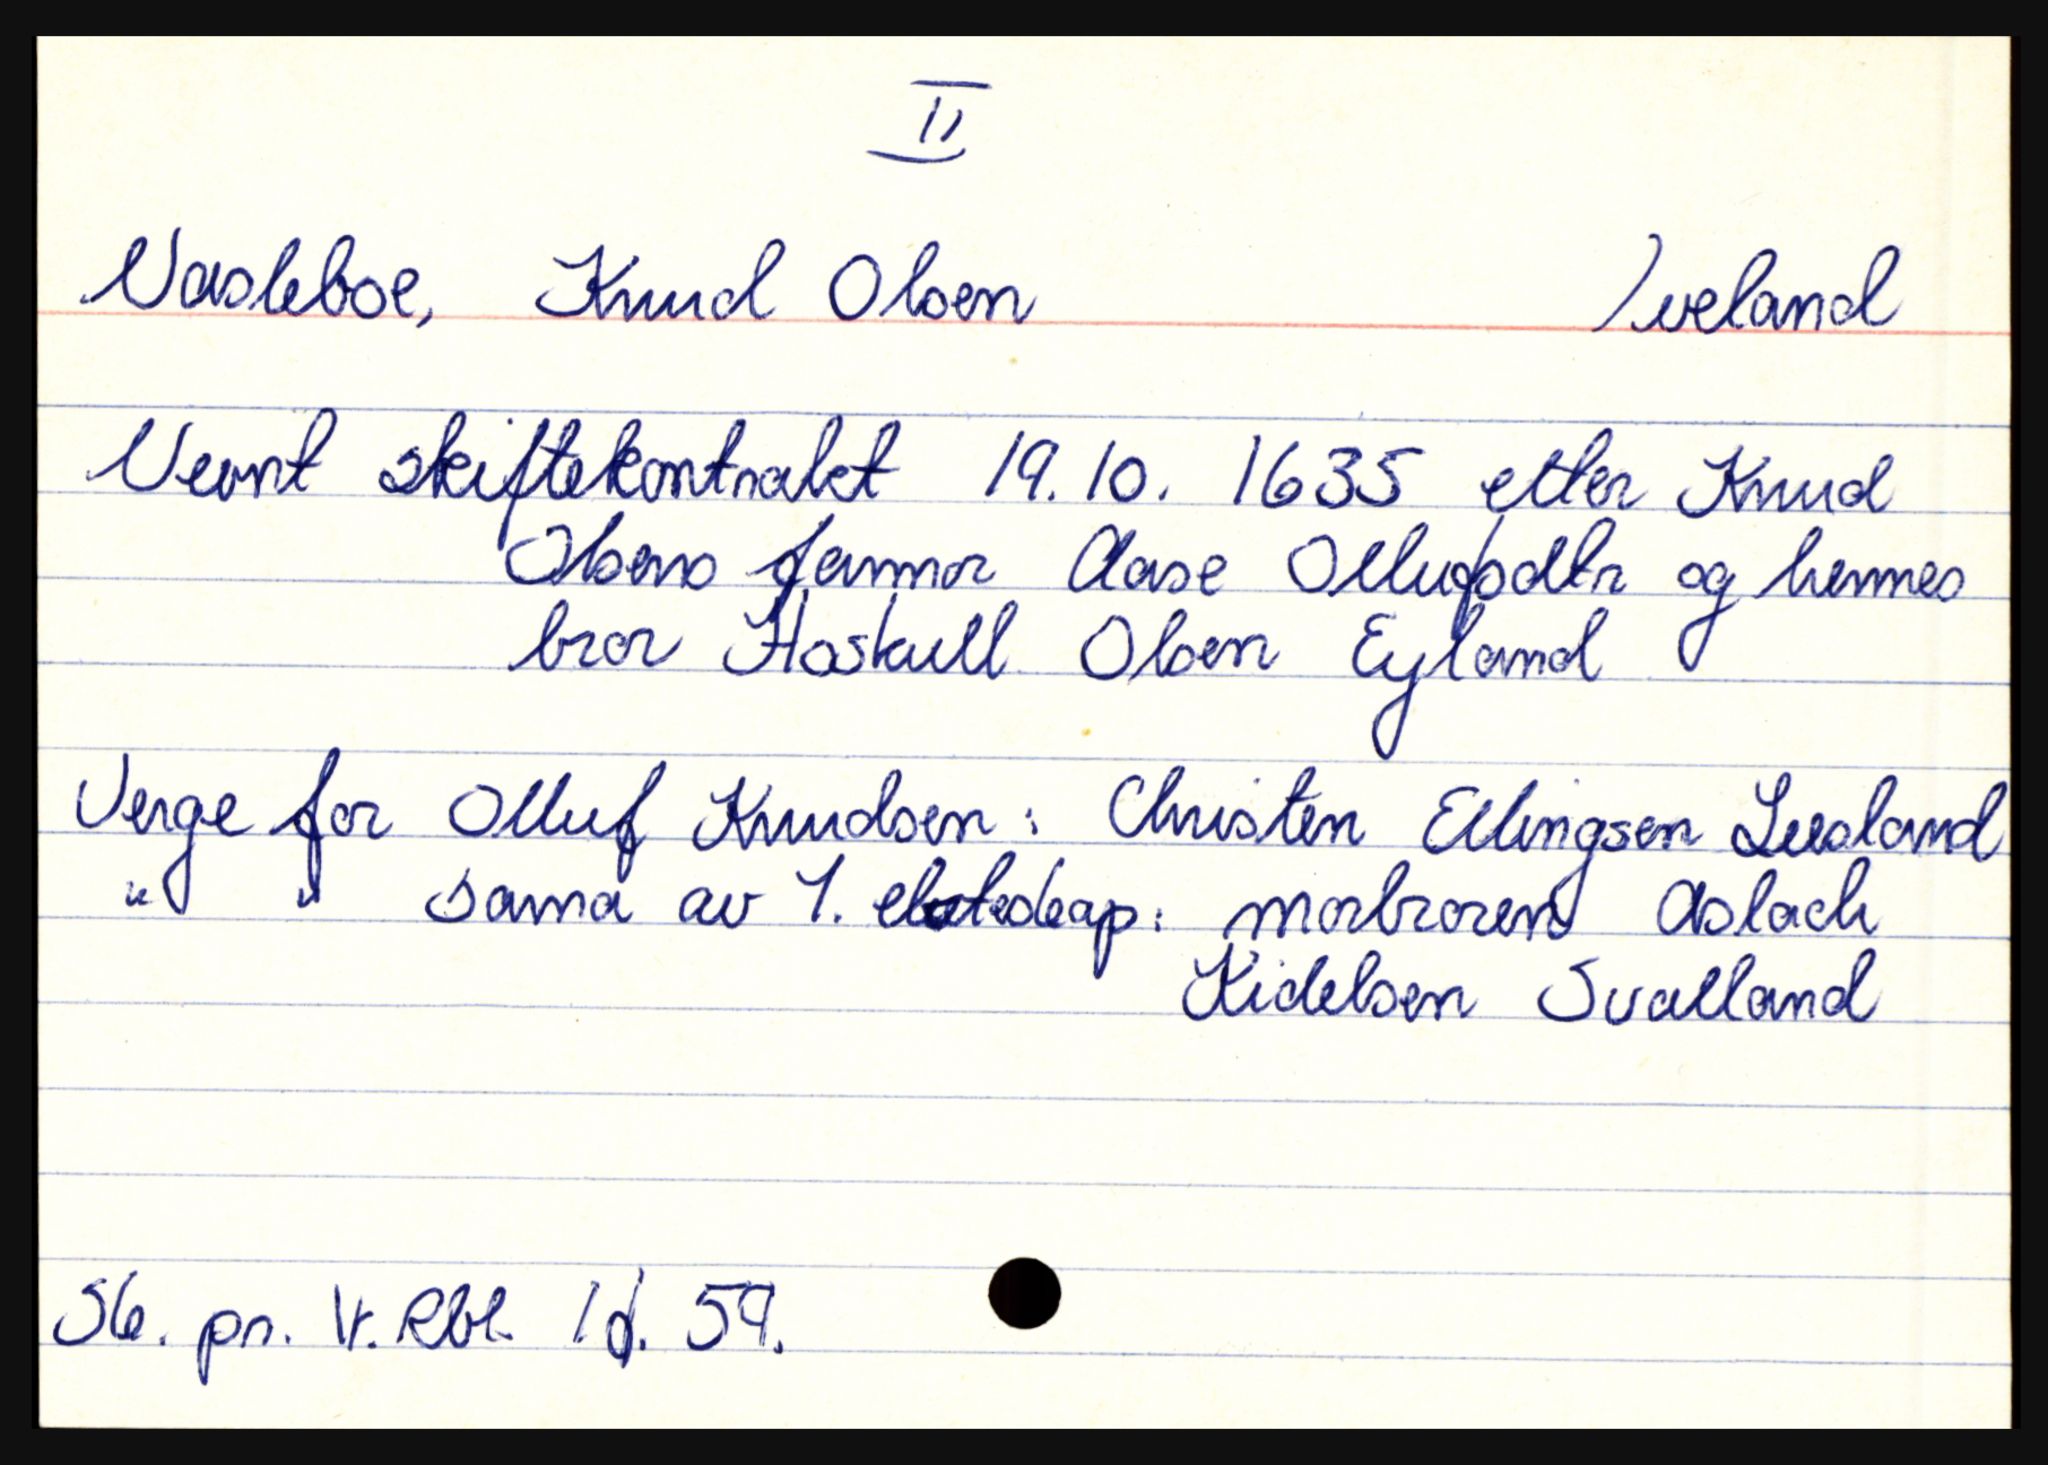 II
Vasleboe, Knud Olsen Iveland
Nevnt skiftekontrakt 19.10. 1635 etter Knud
Olsens farmor Aase Ollufsdtr og hennes
bror Hoskull Olsen Eyland
Verge for Olluf Knudsen: Christen Ellingsen Liesland
" " sama av 1. ekteskap: morbroren Aslach
Kidelsen Svalland
Sk. pr. V. Rbl. 1 f. 59.